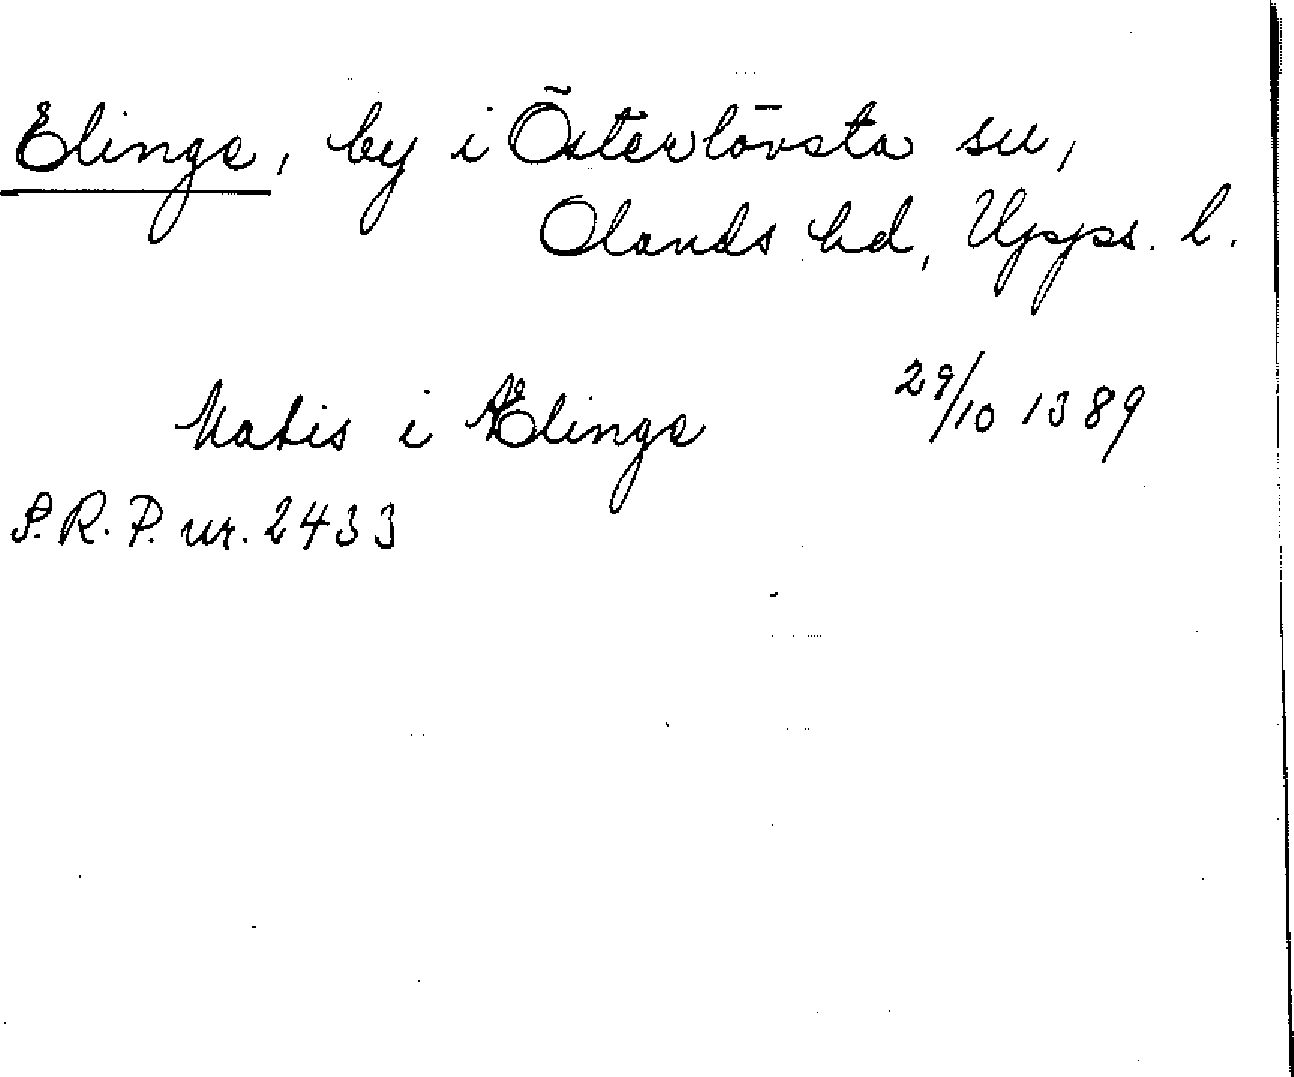 Elinge, by i Österlövsta sn,
Olands hd, Upps. l.
Matis i Elinge 29/10 1389
S.R.P. nr. 2433